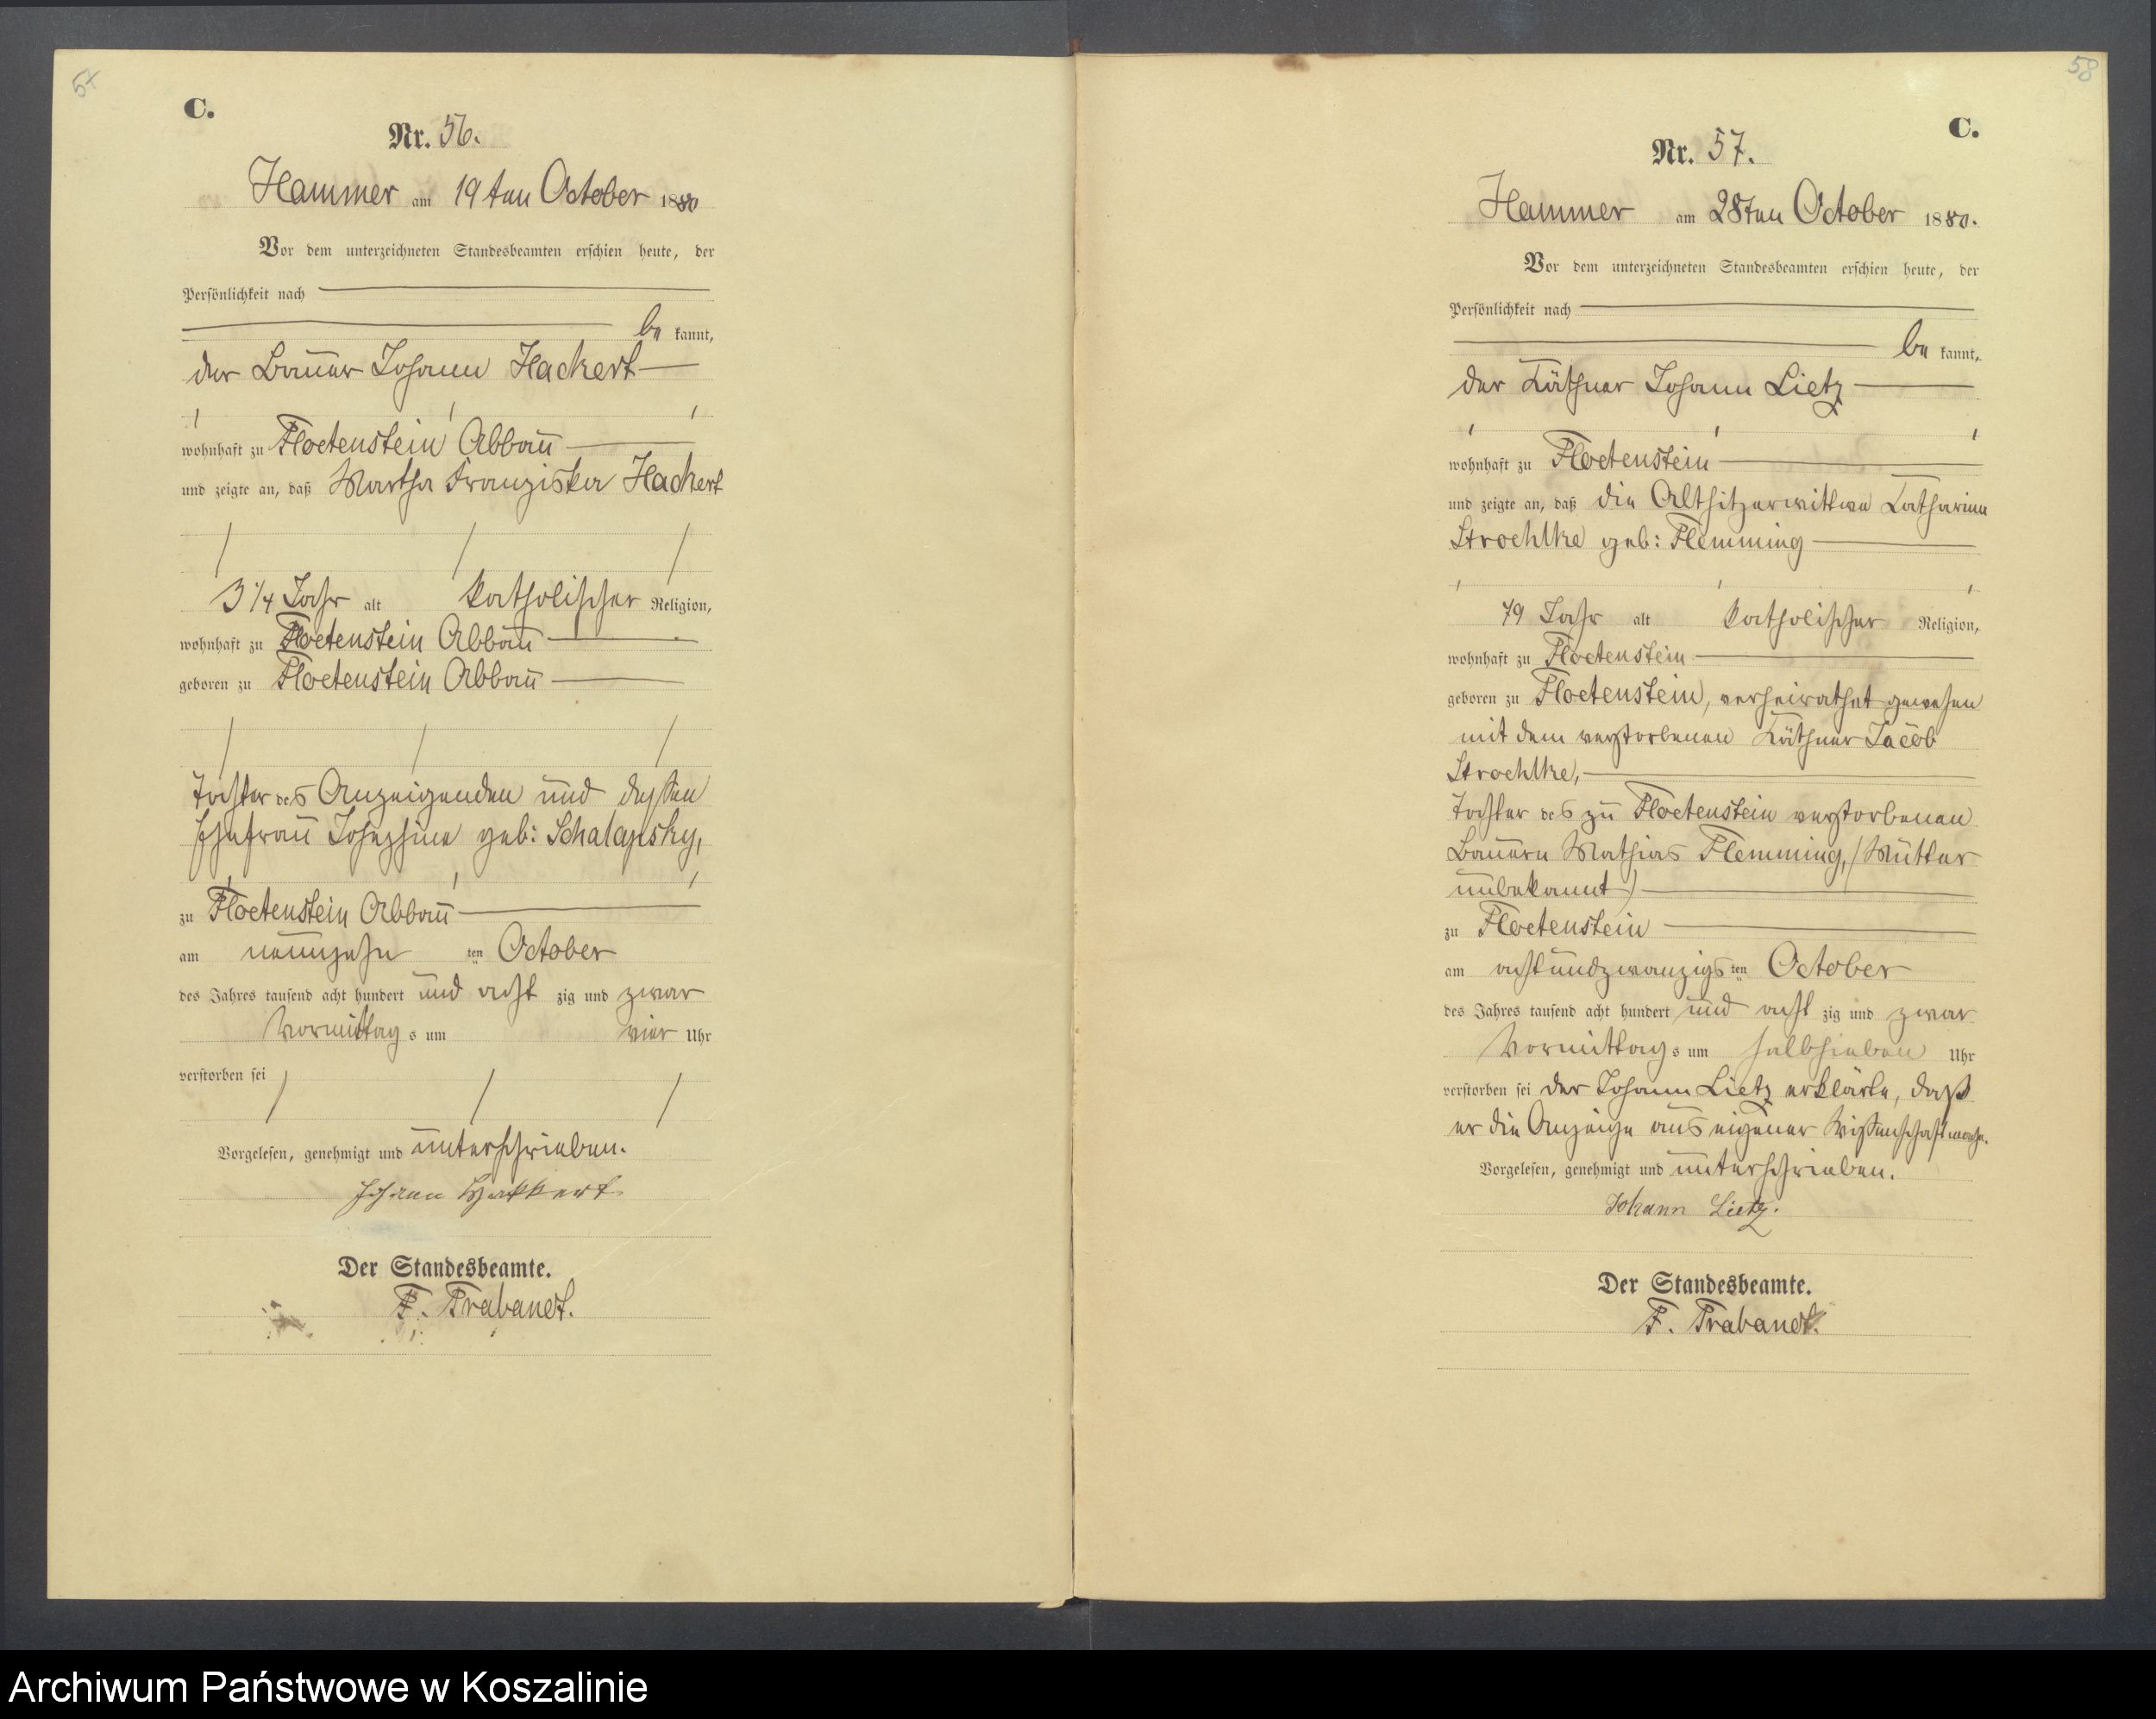 C.
Nr. 56.
Hammer am 19ten October 1880
Vor dem unterzeichneten Standesbeamten erschien heute, der
Persönlichkeit nach
be kannt,
der Bauer Johann Hackert
wohnhaft zu Floetenstein Abbau
und zeigte an, daß Martha Franziska Hackert
3 1/4 Jahr alt katholischer Religion,
wohnhaft zu Floetenstein Abbau
geboren zu Floetenstein Abbau
Tochter des Anzeigenden und dessen
Ehefrau Josephine geb:
zu Floetenstein Abbau
am neunzehn ten October
des Jahres tausend acht hundert und acht zig und zwar
Vormittag s um vier Uhr
verstorben sei
Vorgelesen, genehmigt und unterschrieben.
Johann Hakkert
Der Standesbeamte.
F. Trabandt.
58
C.
Nr. 57.
Hammer am 28ten October 1880.
Vor dem unterzeichneten Standesbeamten erschien heute, der
Persönlichkeit nach
be kannt,
der Käthner Johann Lietz
wohnhaft zu Floetenstein
und zeigte an, daß die Altsitzerwittwe Katharina
Stroehlke geb: Flemming
79 Jahr alt katholischer Religion,
wohnhaft zu Floetenstein
geboren zu Floetenstein, verheirathet gewesen
mit dem verstorbenen Käthner Jacob
Stroehlke,
Tochter des zu Floetenstein verstorbenen
Bauern Mathias Flemming, (Mutter
unbekannt)
zu Floetenstein
am achtundzwanzigs ten October
des Jahres tausend acht hundert und acht zig und zwar
Vormittag s um halbsieben Uhr
verstorben sei der Johann Lietz erklärte, daß
er die Anzeige aus eigener Wissenschaft mache.
Vorgelesen, genehmigt und unterschrieben.
Johann Lietz.
Der Standesbeamte.
F. Trabandt.
Archiwum Państwowe w Koszalinie